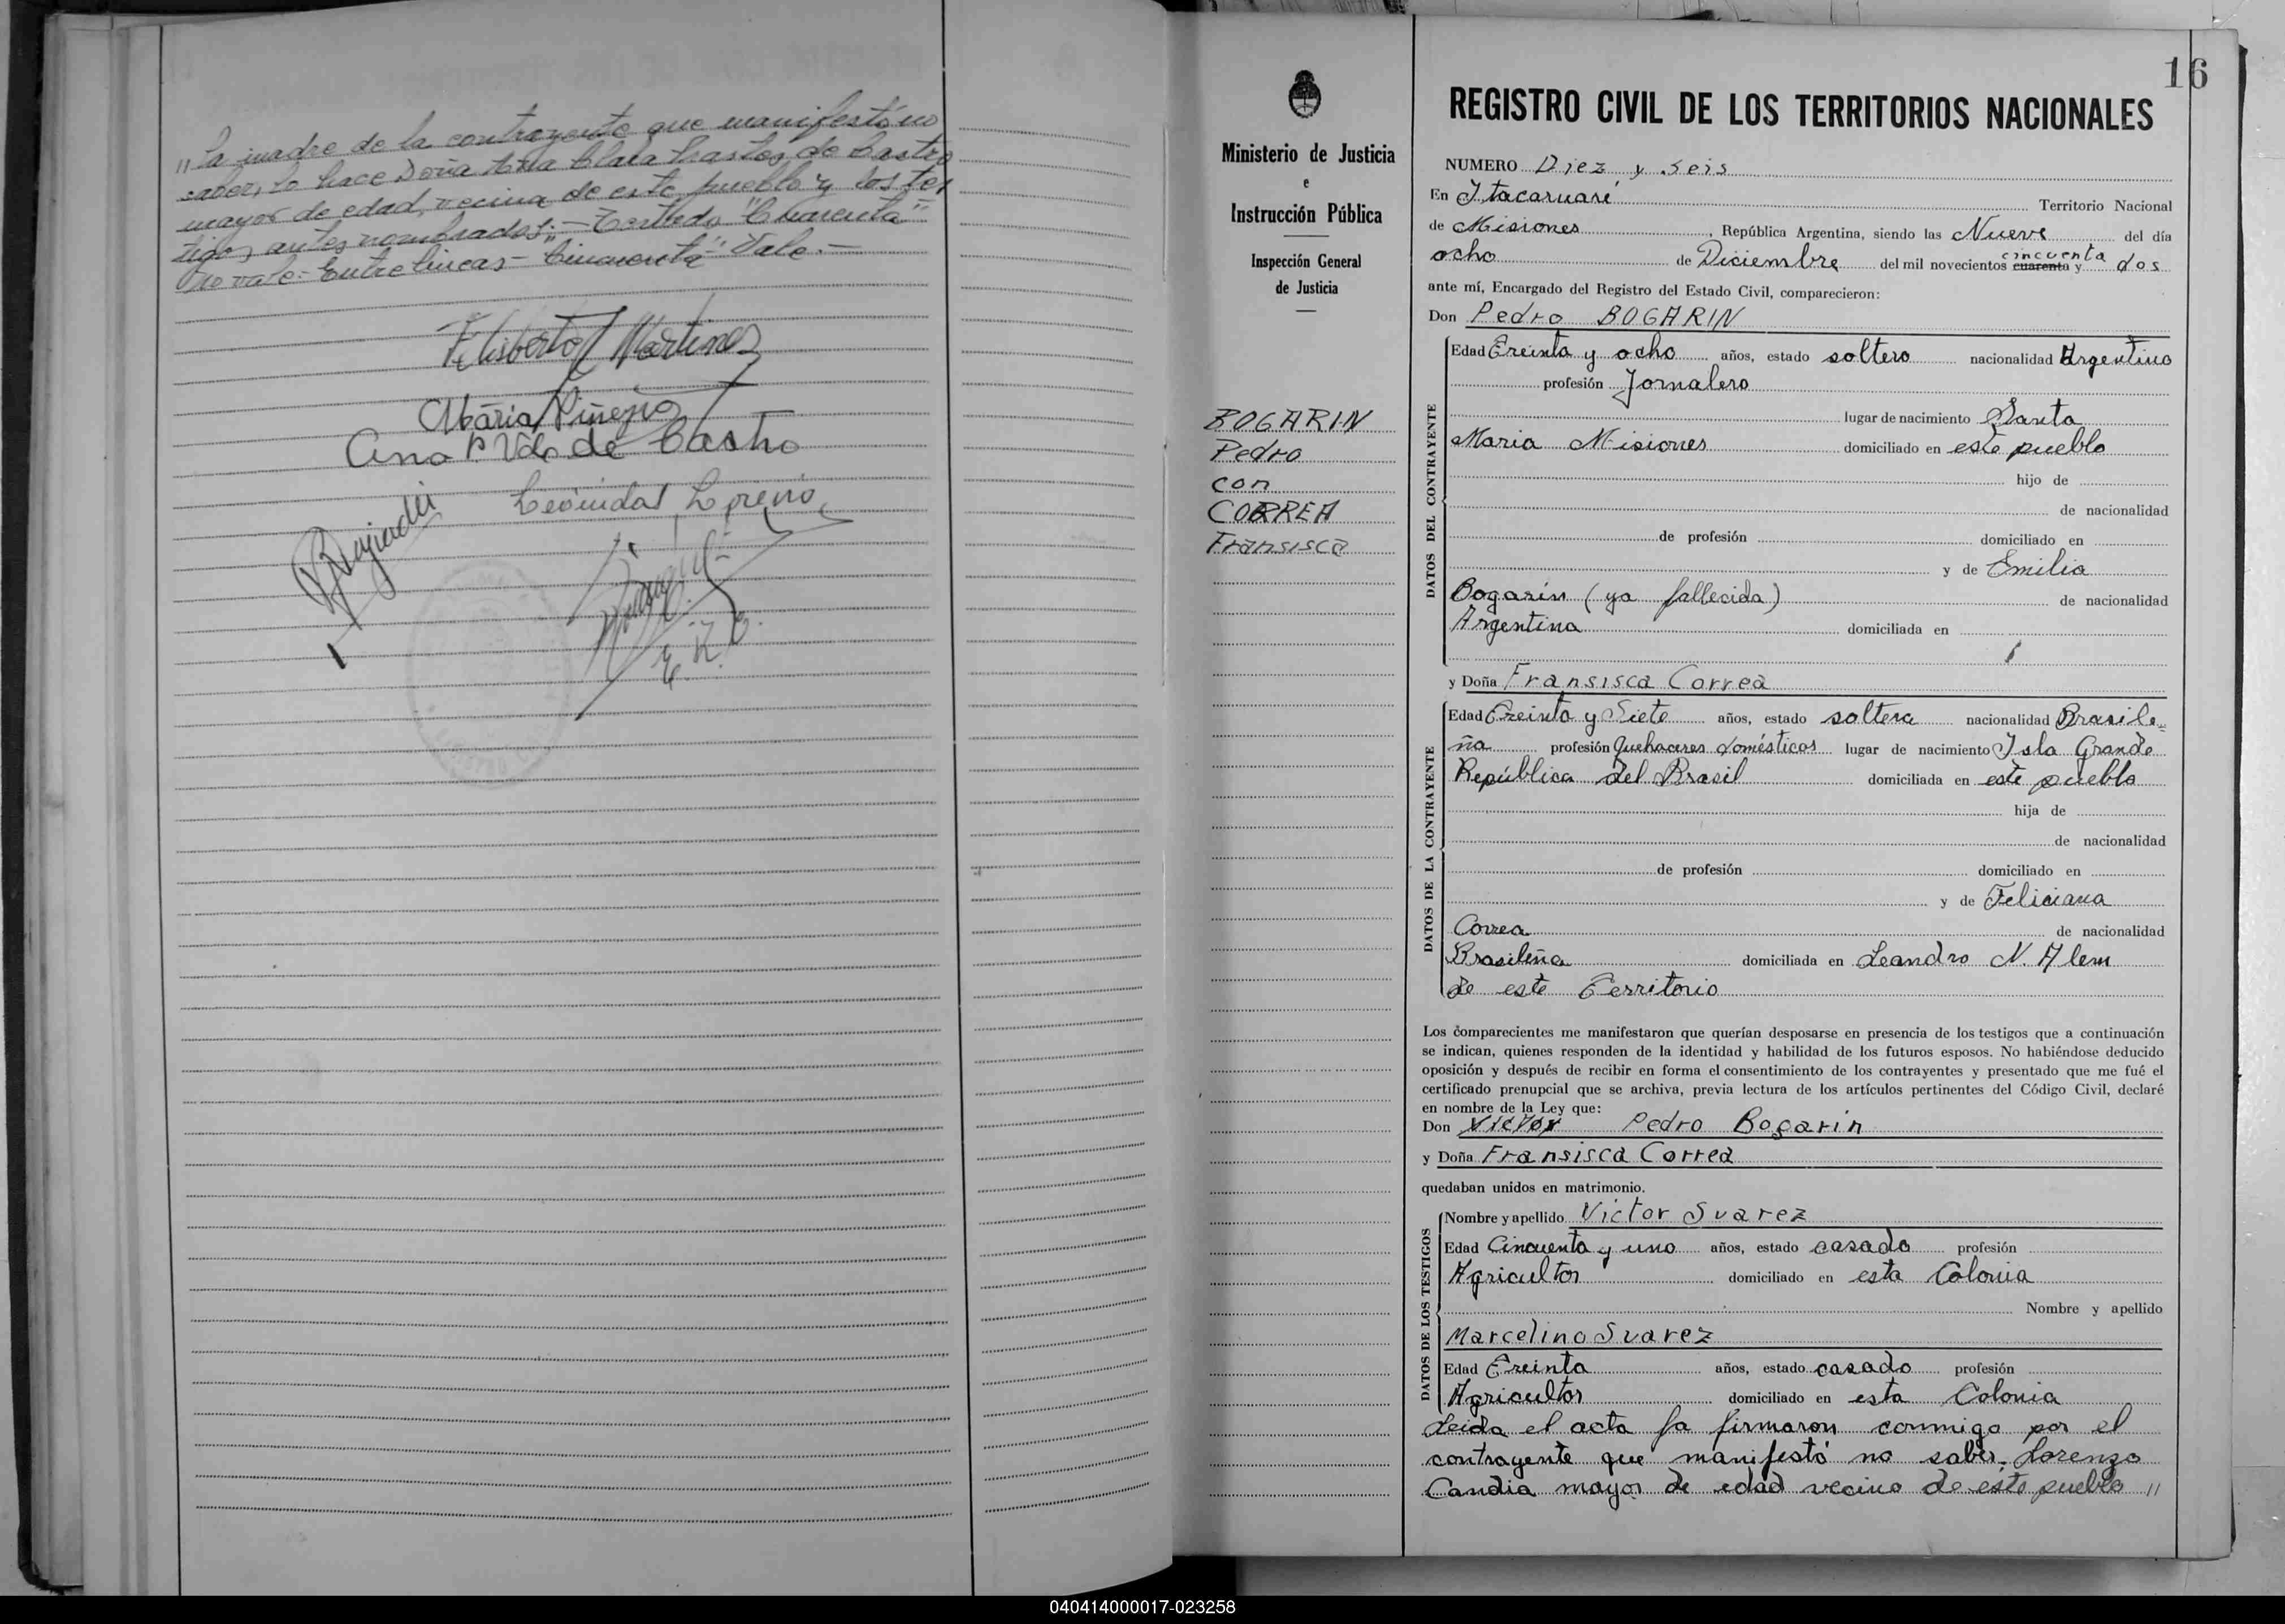 "La madre de la contrayente que manifestó no
saber, lo hace Doña Ana Clara de Castro
mayor de edad, vecina de este pueblo y los tes
tigos antes nombrados.- Testado "Cuarenta"
No vale.- Entre lineas- "Cincuenta" Vale.-
Filisberto Martinez
Maria Piñeyro
Ana P. Vda de Castro
Leonidas
16
Ministerio de Justicia
e
Instrucción Pública
Inspección General
de Justicia
BOGARIN
Pedro
con
CORREA
Fransisca
REGISTRO CIVIL DE LOS TERRITORIOS NACIONALES
NUMERO Diez y Seis
En Itacaruaré Territorio Nacional
de Misiones, República Argentina, siendo las Nueve del día
cincuenta
ocho de Diciembre del mil novecientos cuarenta y dos
ante mí, Encargado del Registro del Estado Civil, comparecieron:
Don Pedro BOGARIN
DATOS DEL CONTRAYENTE
Edad Treinta y ocho años, estado soltero nacionalidad Argentino
profesión Jornalero
lugar de nacimiento Santa
Maria Misiones domiciliado en este pueblo
hijo de
de nacionalidad
de profesión domiciliado en
y de Emilia
Bogarin (ya fallecida) de nacionalidad
Argentina domiciliada en
y Doña Fransisca Correa
DATOS DE LA CONTRAYENTE
Edad Treinta y Siete años, estado soltera nacionalidad Brasile-
ña profesión Quehaceres domésticos lugar de nacimiento Isla Grande
República del Brasil domiciliada en este pueblo
hija de
de nacionalidad
de profesión domiciliado en
y de Feliciana
Correa de nacionalidad
Brasileña domiciliada en Leandro N. Alem
de este Territorio
Los comparecientes me manifestaron que querían desposarse en presencia de los testigos que a continuación
se indican, quienes responden de la identidad y habilidad de los futuros esposos. No habiéndose deducido
oposición y después de recibir en forma el consentimiento de los contrayentes y presentado que me fué el
certificado prenupcial que se archiva, previa lectura de los artículos pertinentes del Código Civil, declaré
en nombre de la Ley que:
Don Victor Pedro Bogarin
y Doña Fransisca Correa
quedaban unidos en matrimonio.
DATOS DE LOS TESTIGOS
Nombre y apellido Victor Suarez
Edad Cincuenta y uno años, estado casado profesión
Agricultor domiciliado en esta Colonia
Nombre y apellido
Marcelino Suarez
Edad Treinta años, estado casado profesión
Agricultor domiciliado en esta Colonia
Leida el acta la firmaron conmigo por el
contrayente que manifestó no saber, Lorenzo
Candia mayor de edad vecino de este pueblo "
040414000017-023258